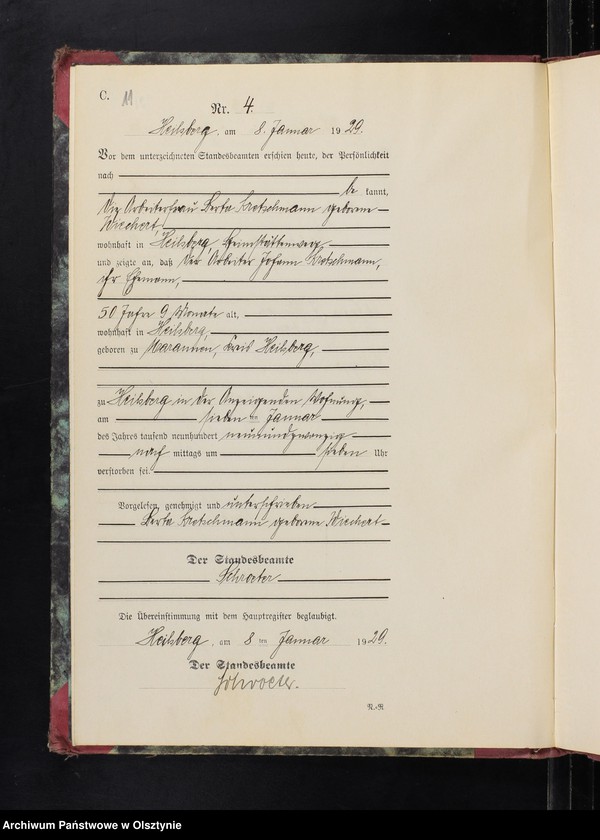 C. 11
Nr. 4.
Heilsberg, am 8. Januar 1929.
Vor dem unterzeichneten Standesbeamten erschien heute, der Persönlichkeit
nach
be kannt,
die Arbeiterfrau Berta Kretschmann geborene
Wiechert,
wohnhaft in Heilsberg, Heimstättenweg,
und zeigte an, daß der Arbeiter Johann Kretschmann,
ihr Ehemann,
50 Jahre 9 Monate alt,
wohnhaft in Heilsberg,
geboren zu Maraunen, Kreis Heilsberg,
zu Heilsberg in der Anzeigenden Wohnung,
am sieben ten Januar
des Jahres tausend neunhundert neunundzwanzig
nach mittags um sieben Uhr
verstorben sei.
Vorgelesen, genehmigt und unterschrieben
Berta Kretschmann geborene Wiechert
Der Standesbeamte
Schroeter
Die Übereinstimmung mit dem Hauptregister beglaubigt.
Heilsberg, am 8 ten Januar 1929.
Der Standesbeamte
Schroeter.
R.-R.
Archiwum Państwowe w Olsztynie